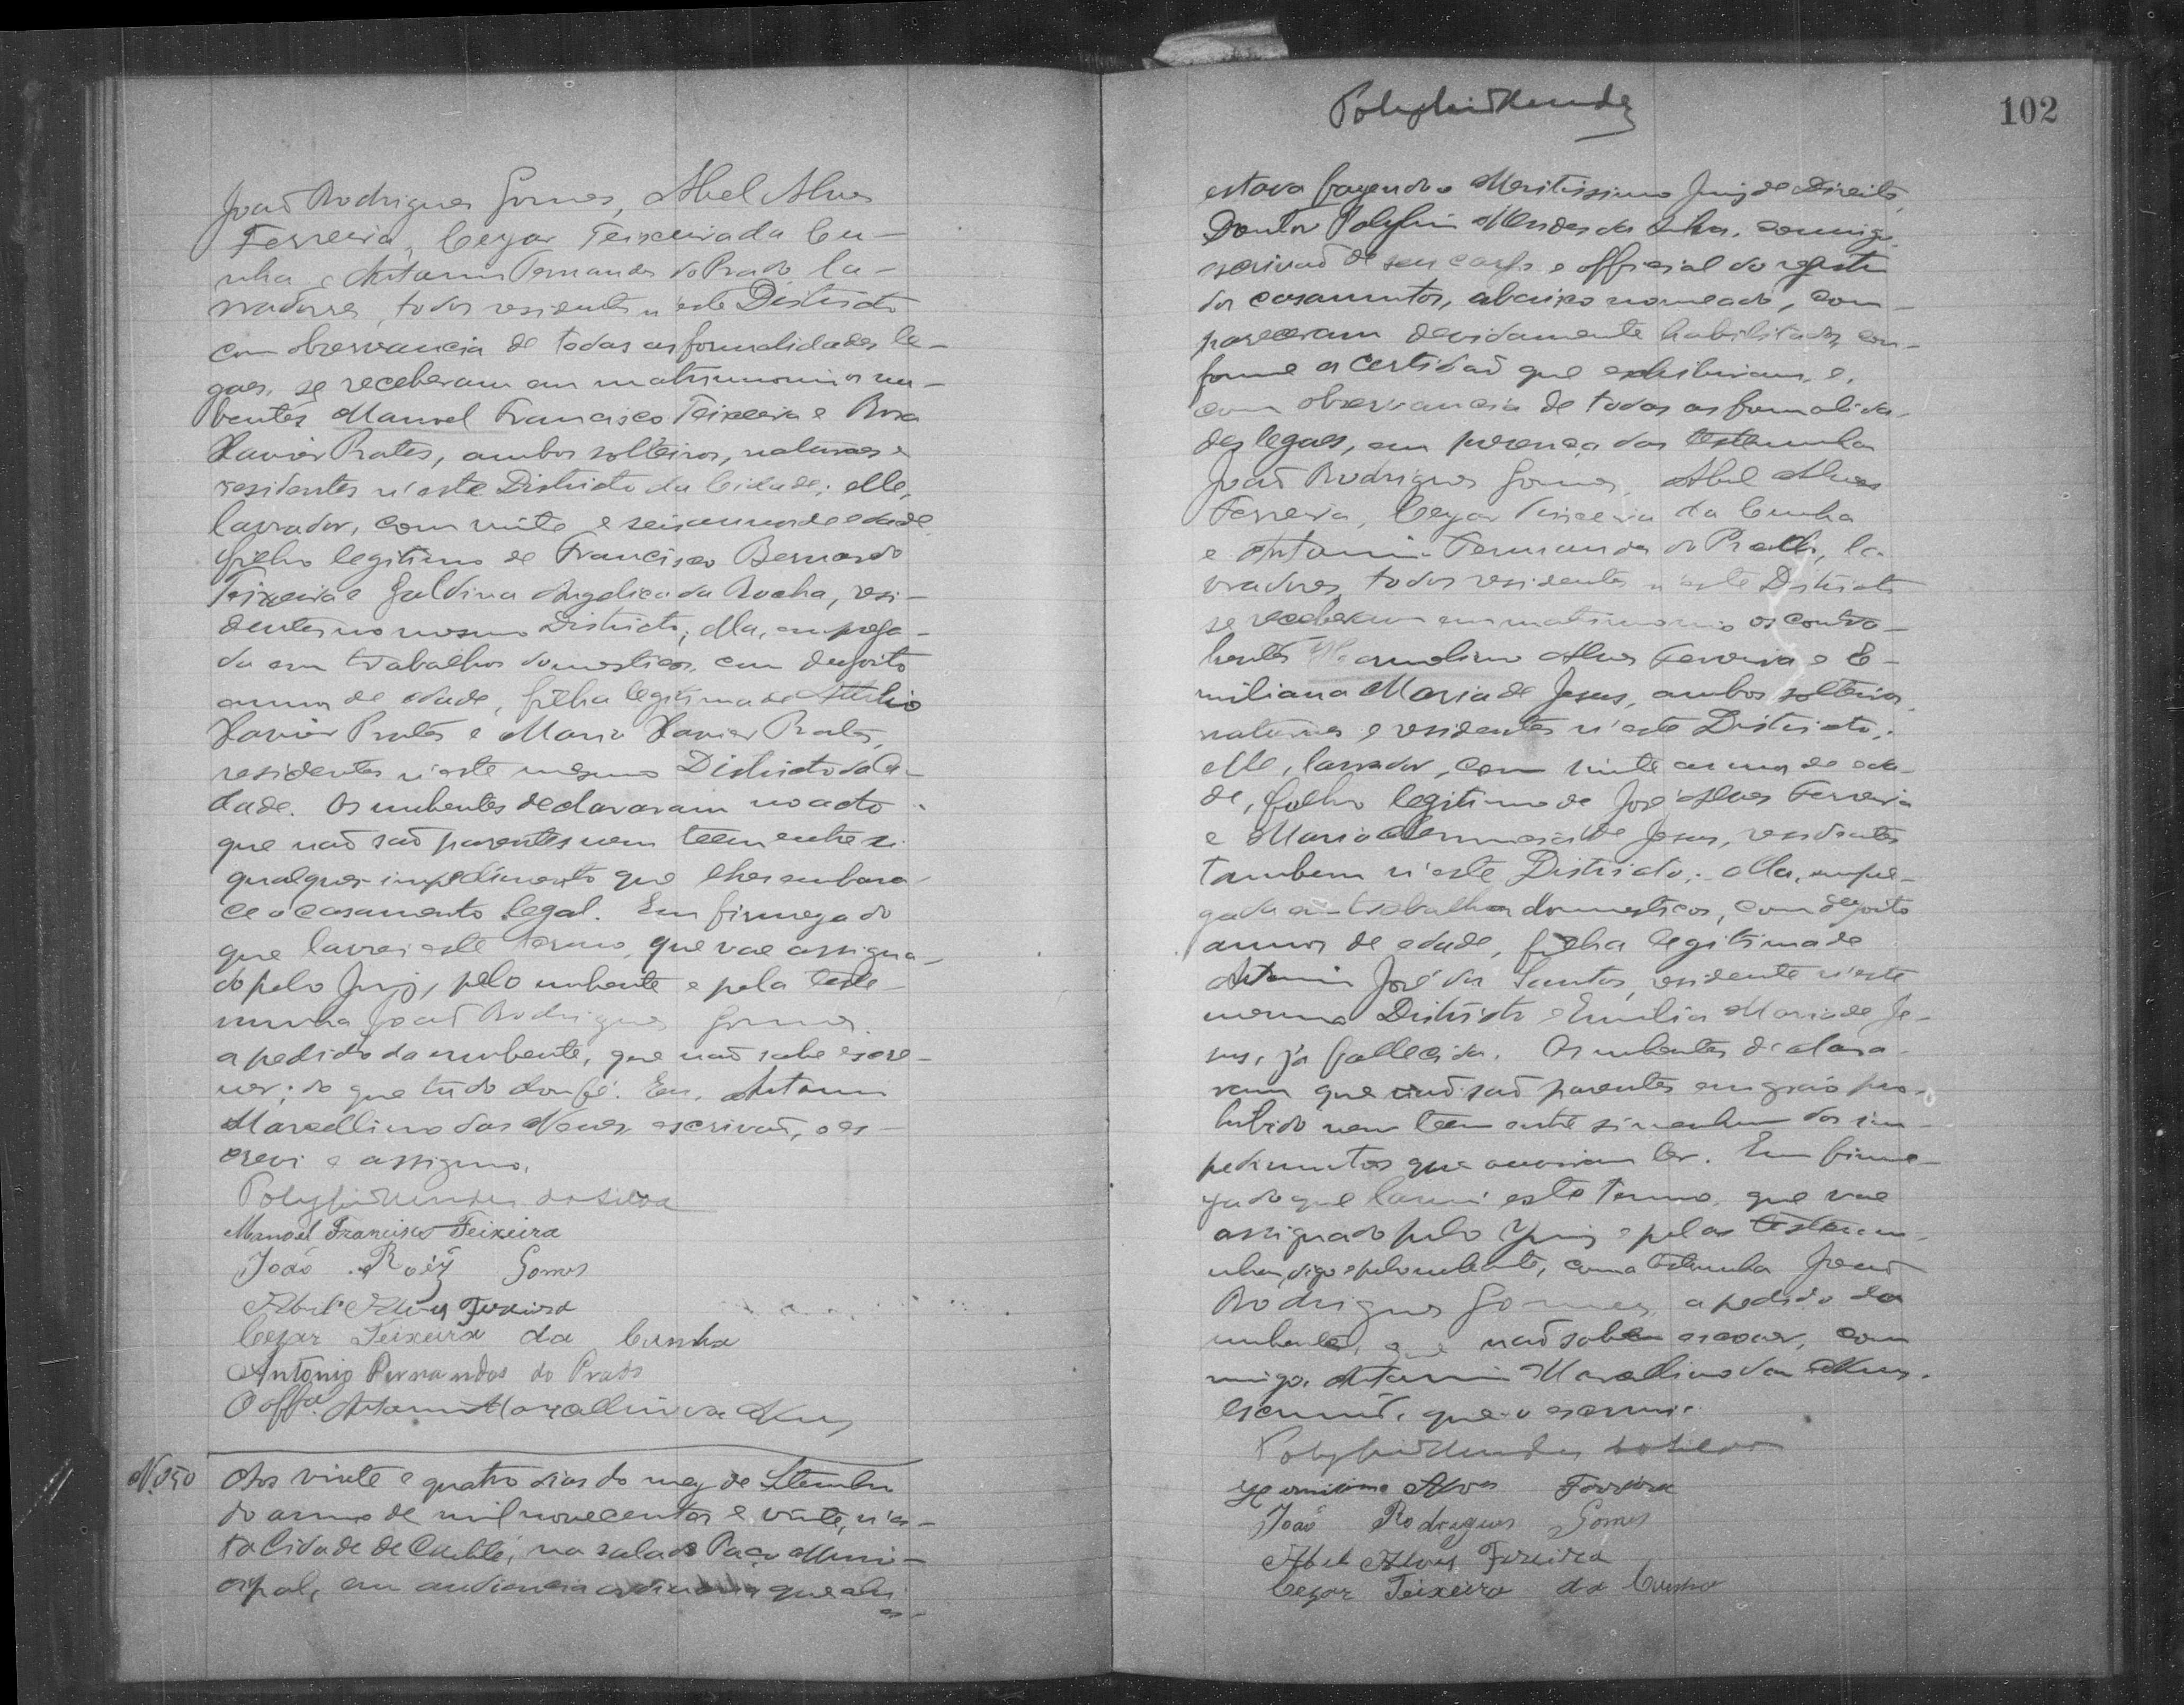 João Rodrigues Gomes, Abel Alves
Ferreira, Cezar Teixeira da Cu-
nha e Antonio Fernandes do Prado, la-
vradores, todos residentes n'este Districto
com observancia de todas as formalidades le-
gaes, se receberam em matrimonio os nu-
bentes Manoel Francisco Teixeira e Rosa
Xavier Prates, ambos solteiros, naturaes e
residentes n'este Districto da Cidade; elle,
lavrador, com vinte e seis annos de edade
filho legitimo de Francisco Bernardo
Teixeira e Guldina Angelica da Rocha, resi-
dentes no mesmo Districto; ella, emprega-
da em trabalhos domesticos, com dezoito
annos de edade, filha legitima de
Xavier Prates e Maria Xavier Prates,
residentes n'este mesmo Districto da Ci-
dade. Os nubentes declararam no acto
que não são parentes nem teem entre si
qualquer impedimento que lhes embara-
ce o casamento legal. Em firmeza do
que lavrei este termo, que vae assigna-
do pelo Juiz, pelo nubente e pela teste-
munha João Rodrigues Gomes.
a pedido da nubente, que não sabe escre-
ver; do que tudo dou fé. Eu, Antonio
Marcellino das Neves, escrivão, o es-
crevi e assigno.
Polyphio Mendes da Silva
Manoel Francisco Teixeira
João Roiz Gomes
Abel Alves Ferreira
Cezar Teixeira da Cunha
Antonio Fernandes do Prado
O offal. Antonio Marcellino das Neves
N. 150 Aos vinte e quatro dias do mez de Setembro
do anno de mil novecentos e vinte, n'es-
ta Cidade de Caeteté, na sala do Paço Muni-
cipal, em audiencia ordinaria que ahi
es-
Polyphio Mendes
102
estava fazendo o Meritissimo Juiz de Direito,
Doutor Polyphio Mendes da Silva, commigo
escrivão de seu cargo e official do registro
dos casamentos, abaixo nomeado, com-
pareceram devidamente habilitados, con-
forme a certidão que exhibiram, e,
com observancia de todas as formalida-
des legaes, em presença das testemunhas
João Rodrigues Gomes, Abel Alves
Ferreira, Cezar Teixeira da Cunha
e Antonio Fernandes do Prado, la-
vradores, todos residentes n'este Districto
se receberam em matrimonio os contra-
hentes Alves Ferreira e E-
miliana Maria de Jesus, ambos solteiros,
naturaes e residentes n'este Districto;
elle, lavrador, com vinte annos de eda-
de, filho legitimo de José Alves Ferreira
e Maria de Jesus, residentes
tambem n'este Districto; ella, empre-
gada em trabalhos domesticos, com dezoito
annos de edade, filha legitima de
Antonio José dos Santos, residente n'este
mesmo Districto e Emilia Maria de Je-
sus, já fallecida. Os nubentes declara-
ram que não são parentes em gráo pro-
hibido nem teem entre si nenhum dos im-
pedimentos que ter. Em firme-
za do que lavrei este termo, que vae
assignado pelo Juiz e pelas testemu-
nhas, digo e pelo nubente, com a testemunha João
Rodrigues Gomes, a pedido da
nubente, que não sabe escrever, com-
migo, Antonio Marcellino das Neves,
escrivão, que o escrevi.
Polyphio Mendes da Silva
Alves Ferreira
João Rodrigues Gomes
Abel Alves Ferreira
Cezar Teixeira da Cunha